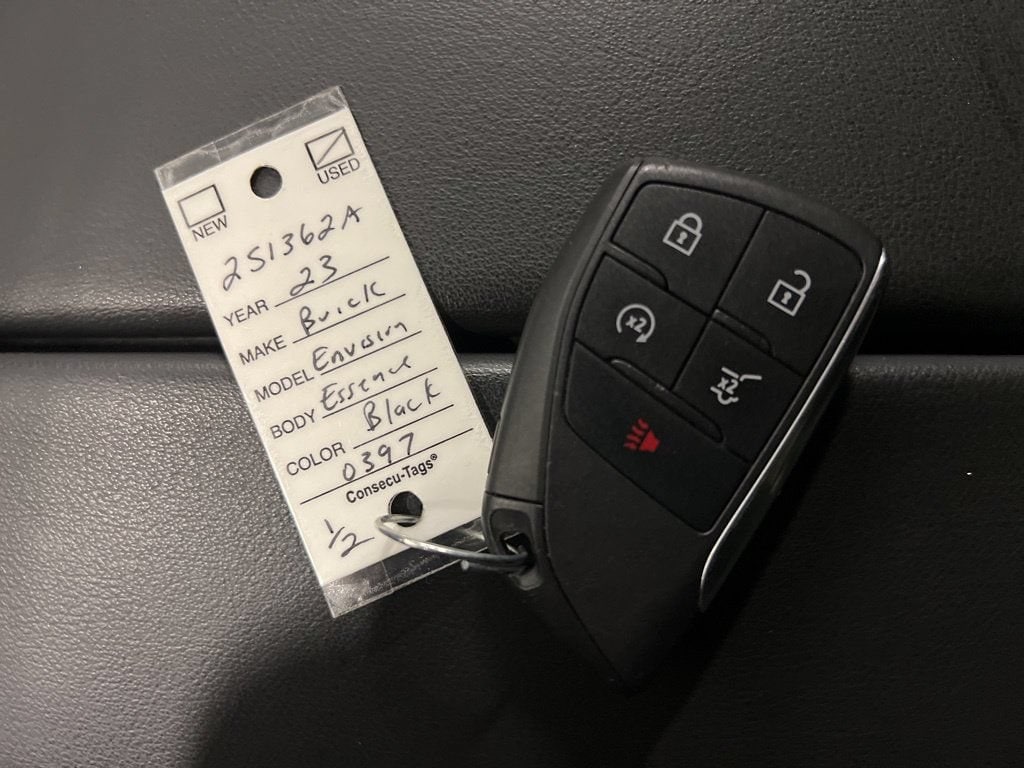 NEW USED
251362A
YEAR 23
MAKE Buick
MODEL Envision
BODY Essence
COLOR Black
0397
Consecu-Tags®
1/2
x2
x2